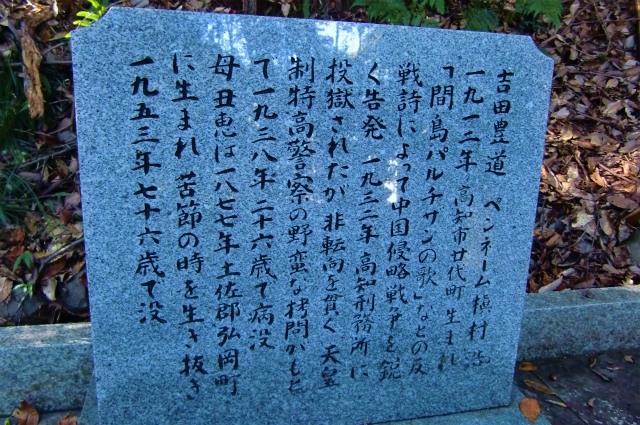 吉田豊道 ペンネーム槇村浩
一九一二年 高知市廿代町生まれ
「間島パルチザンの歌」などの反
戦詩によって中国侵略戦争を鋭
く告発 一九三二年 高知刑務所に
投獄されたが 非転向を貫く 天皇
制特高警察の野蛮な拷問がもと
で一九三八年 二十六歳で病没
母丑恵は一八七七年 土佐郡弘岡町
に生まれ 苦節の時を生き抜き
一九五三年 七十六歳で没